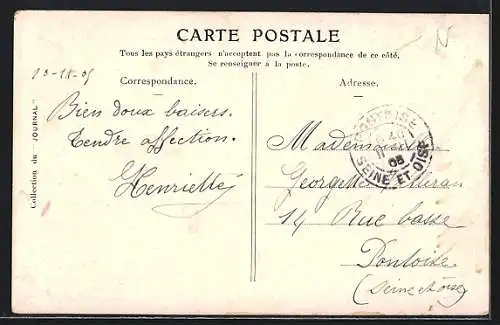 CARTE POSTALE
Tous les pays étrangers n'acceptent pas la correspondance de ce côté.
Se renseigner à la poste.
Correspondance.
Adresse.
Collection du "JOURNAL"
Bien doux baisers.
Tendre affection.
Henriette
Mademoiselle
Georgette
14 Rue basse
Pontoise
(Seine et Oise)
PONTOISE
05
SEINE ET OISE
N